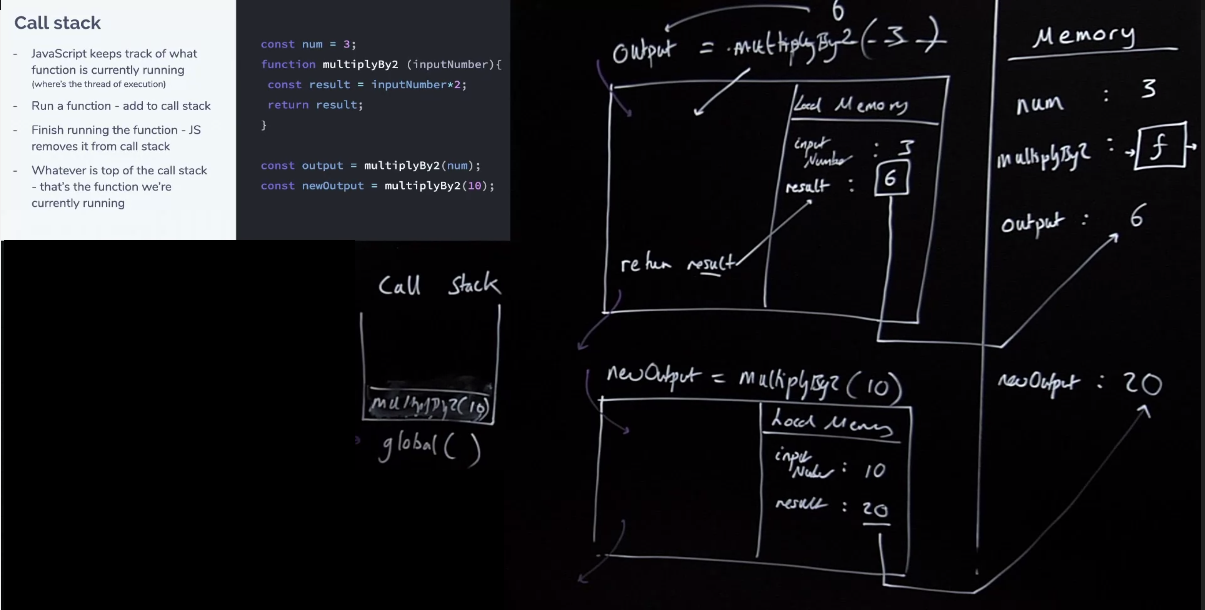 Call stack
- JavaScript keeps track of what
function is currently running
(where's the thread of execution)
- Run a function - add to call stack
- Finish running the function - JS
removes it from call stack
- Whatever is top of the call stack
- that's the function we're
currently running
const num = 3;
function multiplyBy2 (inputNumber){
const result = inputNumber*2;
return result;
}
const output = multiplyBy2(num);
const newOutput = multiplyBy2(10);
Call Stack
multiplyBy2(10)
global()
6
Output = multiplyBy2(3)
Local Memory
input
Number : 3
result : 6
return result
newOutput = MultiplyBy2(10)
Local Memory
input
Number : 10
result : 20
Memory
num : 3
multiplyBy2 : f
output : 6
newOutput : 20